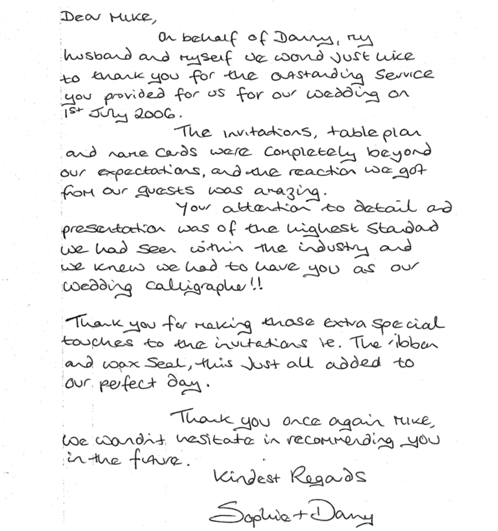 Dear Mike,
On behalf of Danny, my
husband and myself we would just like
to thank you for the outstanding service
you provided for us for our wedding on
1st July 2006.
The invitations, table plan
and name cards were completely beyond
our expectations, and the reaction we got
from our guests was amazing.
Your attention to detail and
presentation was of the highest standard
we had seen within the industry and
we knew we had to have you as our
wedding calligrapher!!
Thank you for making those extra special
touches to the invitations ie. The ribbon
and wax seal, this just all added to
our perfect day.
Thank you once again Mike,
we wouldn't hesitate in recommending you
in the future.
Kindest Regards
Sophie + Danny